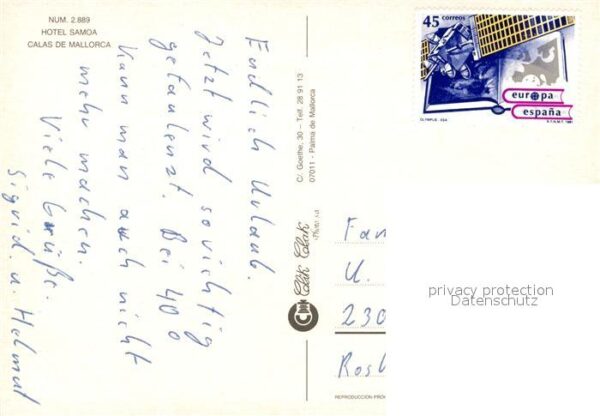 NUM. 2.889
HOTEL SAMOA
CALAS DE MALLORCA
Endlich Urlaub.
Jetzt wird so richtig
gefaulenzt. Bei 40°
kann man auch nicht
mehr machen.
Viele Grüße.
Sigrid. u. Helmut
C/. Goethe, 30 – Telf. 28 91 13
07011 - Palma de Mallorca
Clik Clak
REPRODUCCIÓN
45 correos
europa
españa
OLYMPUS
Fam
U.
230
Rost
privacy protection
Datenschutz